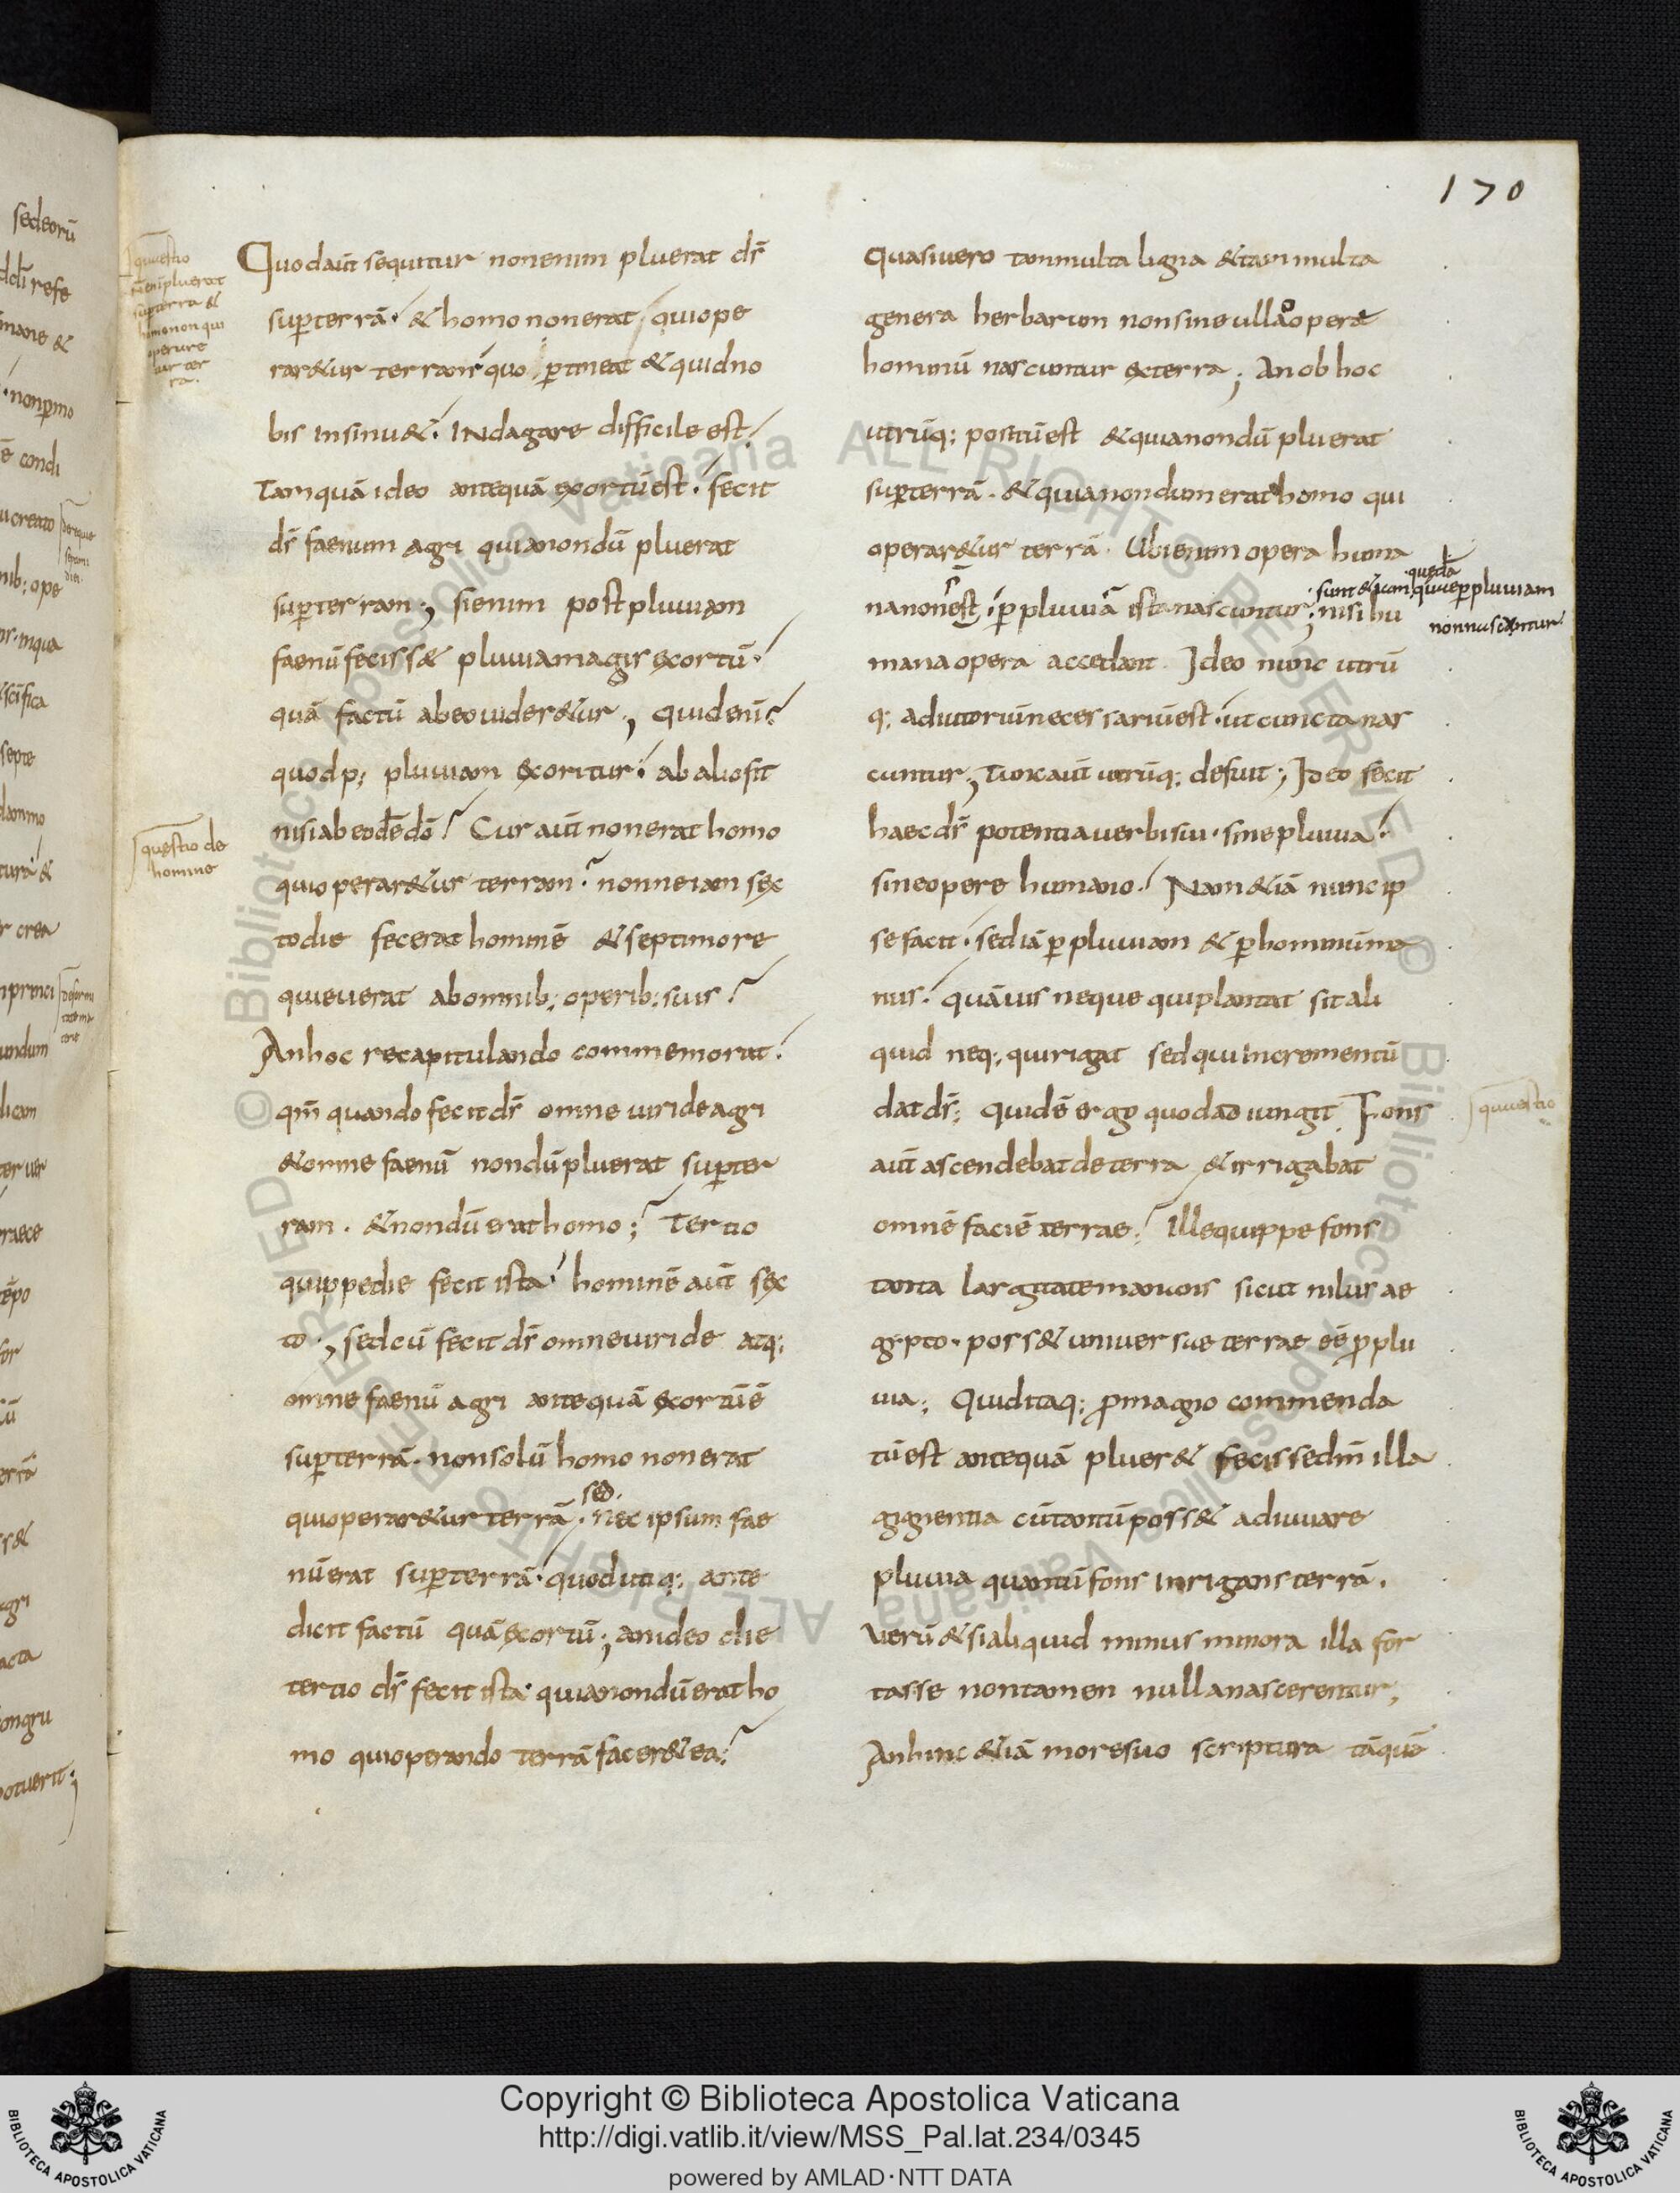 170
questio
nēenīpluerat
supterra &
homo non qui
operare
tur ter
ra.
Quodaut̄ sequitur nonenim pluerat ds̄
sup̄terrā· & homo nonerat quiope
rar&ur terram quo p̄tineat & quidno
bis insinu&· INdagare difficile est
Tamquā ideo antequā exortūest· fecit
ds̄ faenum agri quianondū pluerat
sup̄terram; sienim postpluuiam
faenū feciss& pluuiamagis exortū·
quā factū abeouider&ur; quidenī
quodp; pluuiam exoritur· ab aliofit
nisiabeodēdō Cur aut̄ nonerat homo
questio de
homine
quioperar&ur terram· nonneiam sex
todie fecerat hominē & septimore
quieuerat abomnib; operib; suis
Anhoc recapitulando commemorat
qm̄ quando fecit ds̄ omne uirideagri
& omne faenū nondūpluerat sup̄ter
ram· & nondū erathomo; Tertio
quippedie fecit ista· hominē aut̄ sex
to; sedcū fecit ds̄ omneuiride atq;
omne faenū agri antequā exortūē
sup̄terrā· nonsolū homo nonerat
quioperar&ur terrā· sed nec ipsum fae
nūerat sup̄terrā· quodutiq; ante
dicit factū quāexortū; anideo die
tertio ds̄ fecit ista· quianondūerat ho
mo quioperando terrā facer&ea;
Quasiuero tammulta ligna & tam multa
genera herbarum nonsineullaopera
hominū nascuntur exterra; An ob hoc
utrūq; positūest & quianondū pluerat
sup̄terrā· & quianondumerathomo qui
operar&ur terrā· Ubienim opera huma
nanonest· p̄ pluuiā ista nascuntur; nisi hu
·sunt&iam quedā quae p̄ pluuiam
non nascuntur
mana opera accedant· Ideo nunc utrū
q; adiutoriūnecessariūest· ut cuncta nas
cuntur; Tuncaut̄ utrūq; defuit; Ideo fecit
haecds̄ potentiauerbisui· sinepluuia·
sineopere humano· Nam&iā nunc ip
sefacit· sediā p̄ pluuiam & p̄ hominūma
nus· quāuis neque quiplantat sit ali
quid neq; quirigat sedquiincrementū
datds̄; Quidē ergo quod adiungit Fons
quaestio
aut̄ ascendebatdeterra & irrigabat
omnē faciē terrae· Illequippefons
tanta largitatemanans sicut nilus ae
gypto· poss& uniuersae terrae eē p̄plu
uia; Quiditaq; p̄magno commenda
tūest antequā pluer& fecissedm̄ illa
gignentia cūtantūposs& adiuuare
pluuia quantūfons inrigans terrā·
Uerū & sialiquid minus minora illa for
tasse nontamen nullanascerentur;
Anhinc &iā moresuo scriptura tāquā
Copyright © Biblioteca Apostolica Vaticana
http://digi.vatlib.it/view/MSS_Pal.lat.234/0345
powered by AMLAD·NTT DATA
BIBLIOTECA APOSTOLICA VATICANA
BIBLIOTECA APOSTOLICA VATICANA